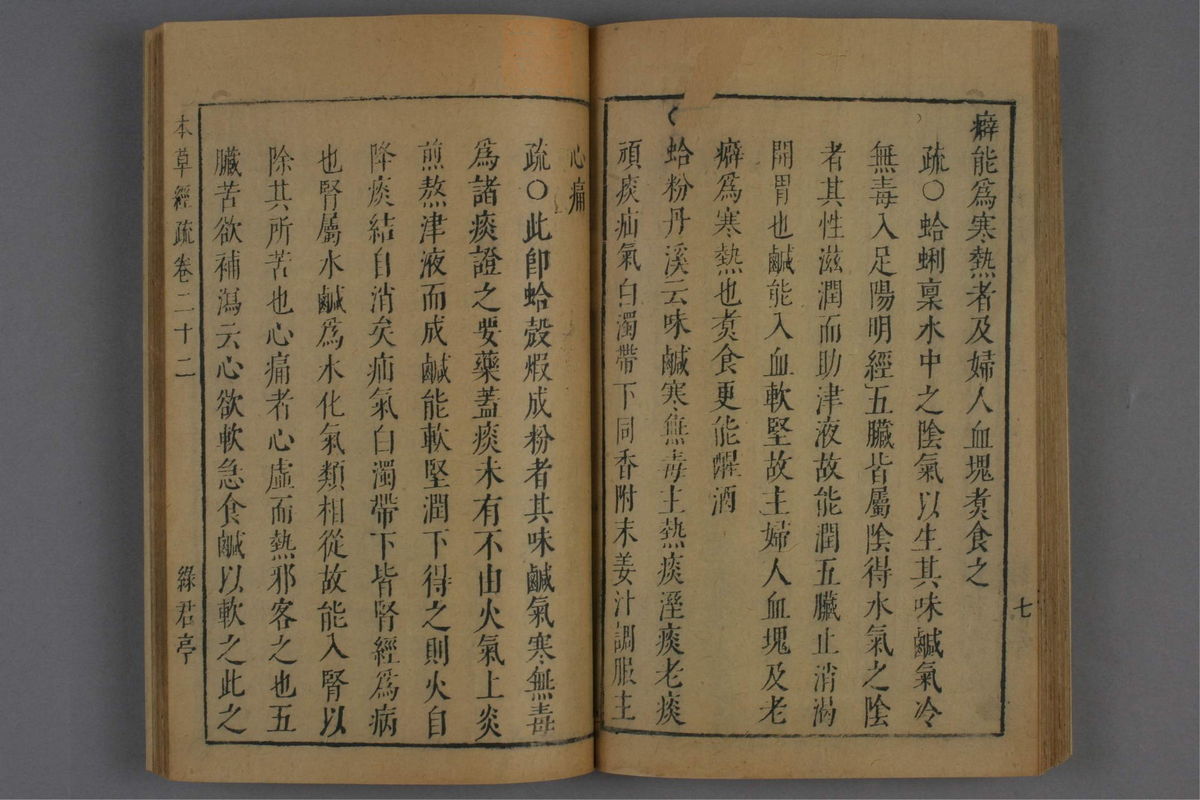 七
癖能爲寒熱者及婦人血塊煑食之
疏○蛤蜊稟水中之陰氣以生其味鹹氣冷
無毒入足陽明經五臟皆屬陰得水氣之陰
者其性滋潤而助津液故能潤五臟止消渴
開胃也鹹能入血軟堅故主婦人血塊及老
癖爲寒熱也煑食更能醒酒
蛤粉丹溪云味鹹寒無毒主熱痰溼痰老痰
頑痰疝氣白濁帶下同香附末姜汁調服主
心痛
疏○此卽蛤殼煆成粉者其味鹹氣寒無毒
爲諸痰證之要藥蓋痰未有不由火氣上炎
煎熬津液而成鹹能軟堅潤下得之則火自
降痰結自消矣疝氣白濁帶下皆腎經爲病
也腎屬水鹹爲水化氣類相從故能入腎以
除其所苦也心痛者心虛而熱邪客之也五
臟苦欲補瀉云心欲軟急食鹹以軟之此之
本草經疏卷二十二
綠君亭